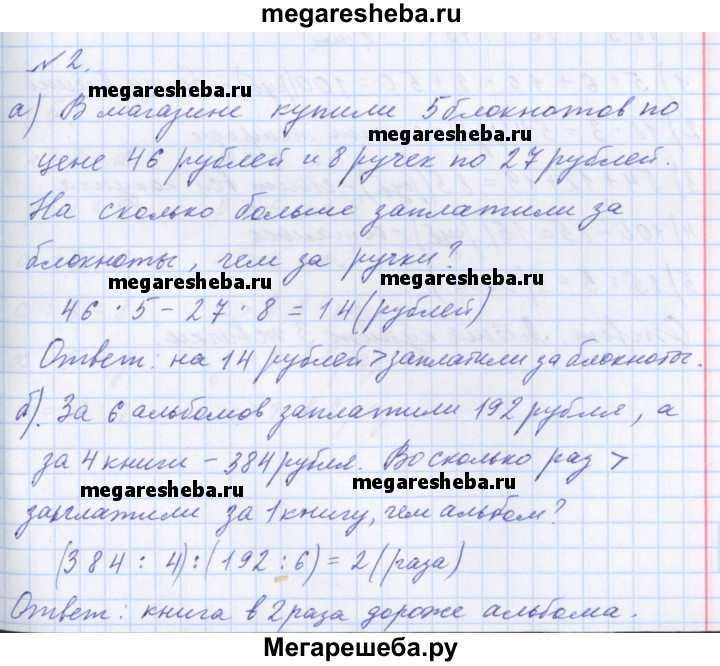 megaresheba.ru
№ 2.
а) В магазине купили 5 блокнотов по
цене 46 рублей и 8 ручек по 27 рублей.
На сколько больше заплатили за
блокноты, чем за ручки?
46 · 5 - 27 · 8 = 14 (рублей)
Ответ: на 14 рублей > заплатили за блокноты.
б). За 6 альбомов заплатили 192 рубля, а
за 4 книги - 384 рубля. Во сколько раз >
заплатили за 1 книгу, чем альбом?
(384 : 4) : (192 : 6) = 2 (раза)
Ответ: книга в 2 раза дороже альбома.
megaresheba.ru
megaresheba.ru
megaresheba.ru
megaresheba.ru
megaresheba.ru
megaresheba.ru
Мегарешеба.ру